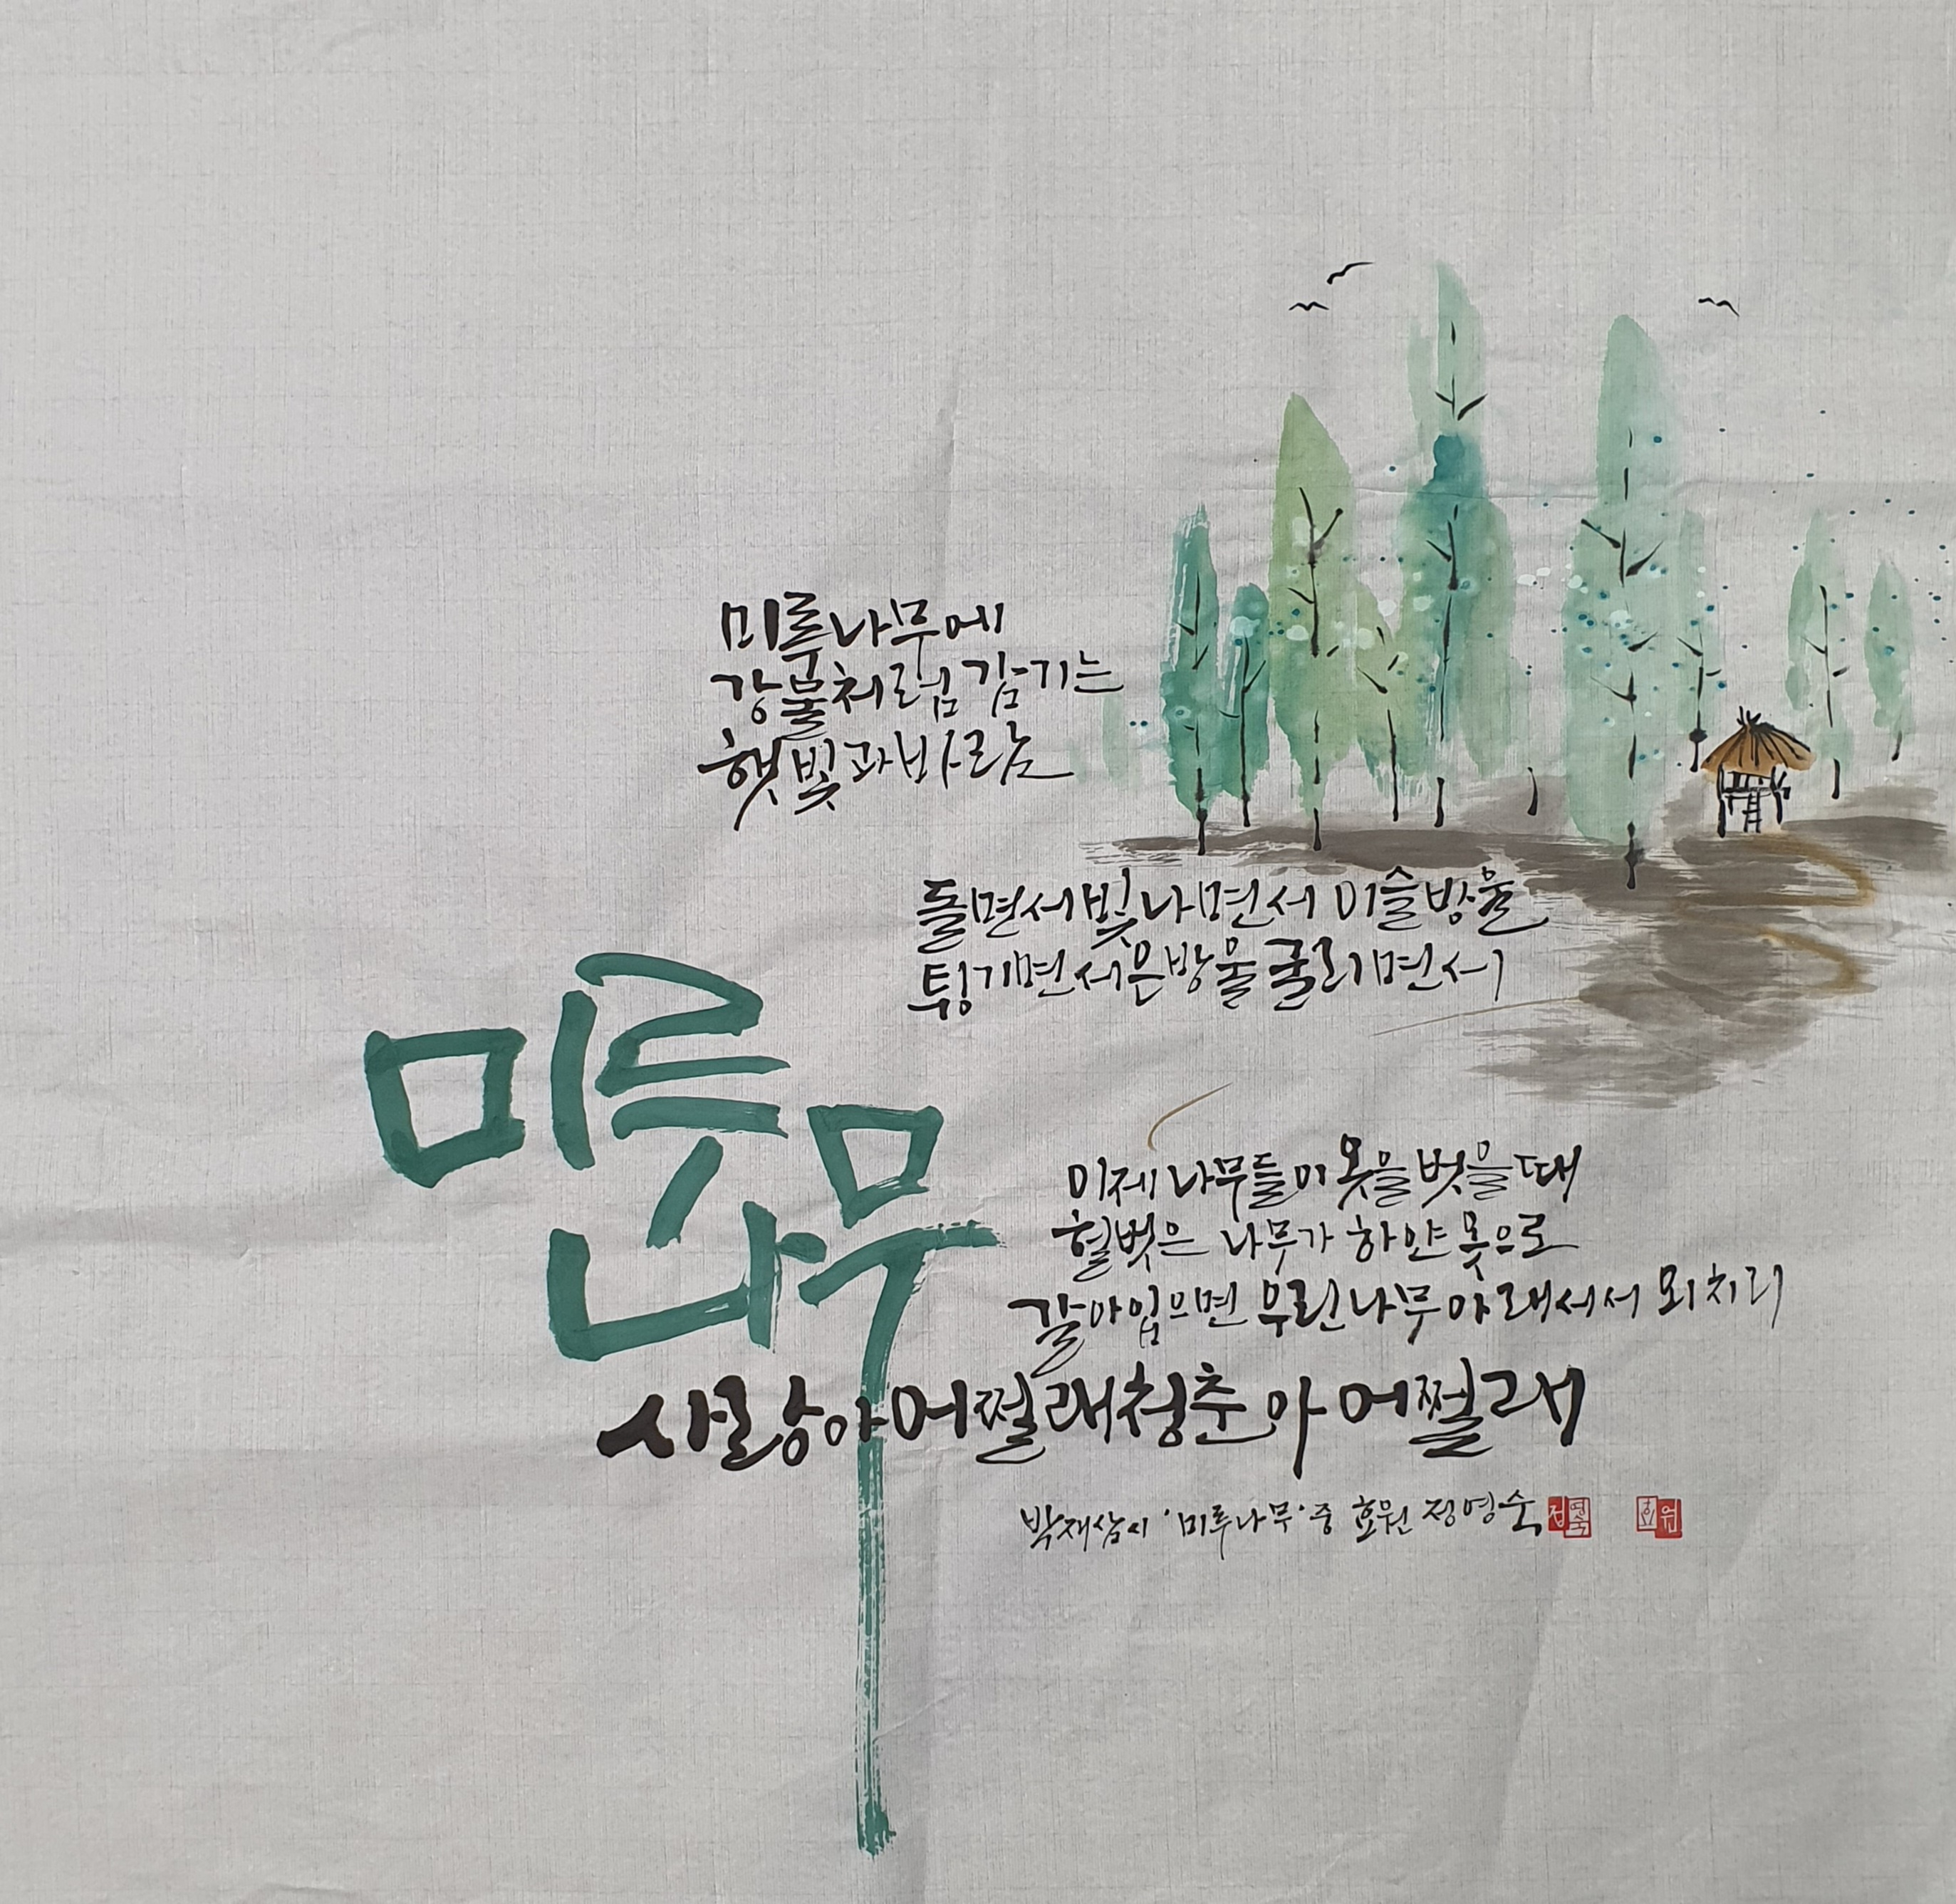 미루나무에
강물처럼 감기는
햇빛과 바람
돌면서 빛나면서 이슬방울
튕기면서 은방울 굴리면서
미루나무
이제 나무들이 옷을 벗을 때
헐벗은 나무가 하얀 옷으로
갈아입으면 우린 나무 아래 서서 외치리
사랑아 어쩔래 청춘아 어쩔래
박재삼 시 '미루나무' 중 효원 정영숙
정영숙 효원